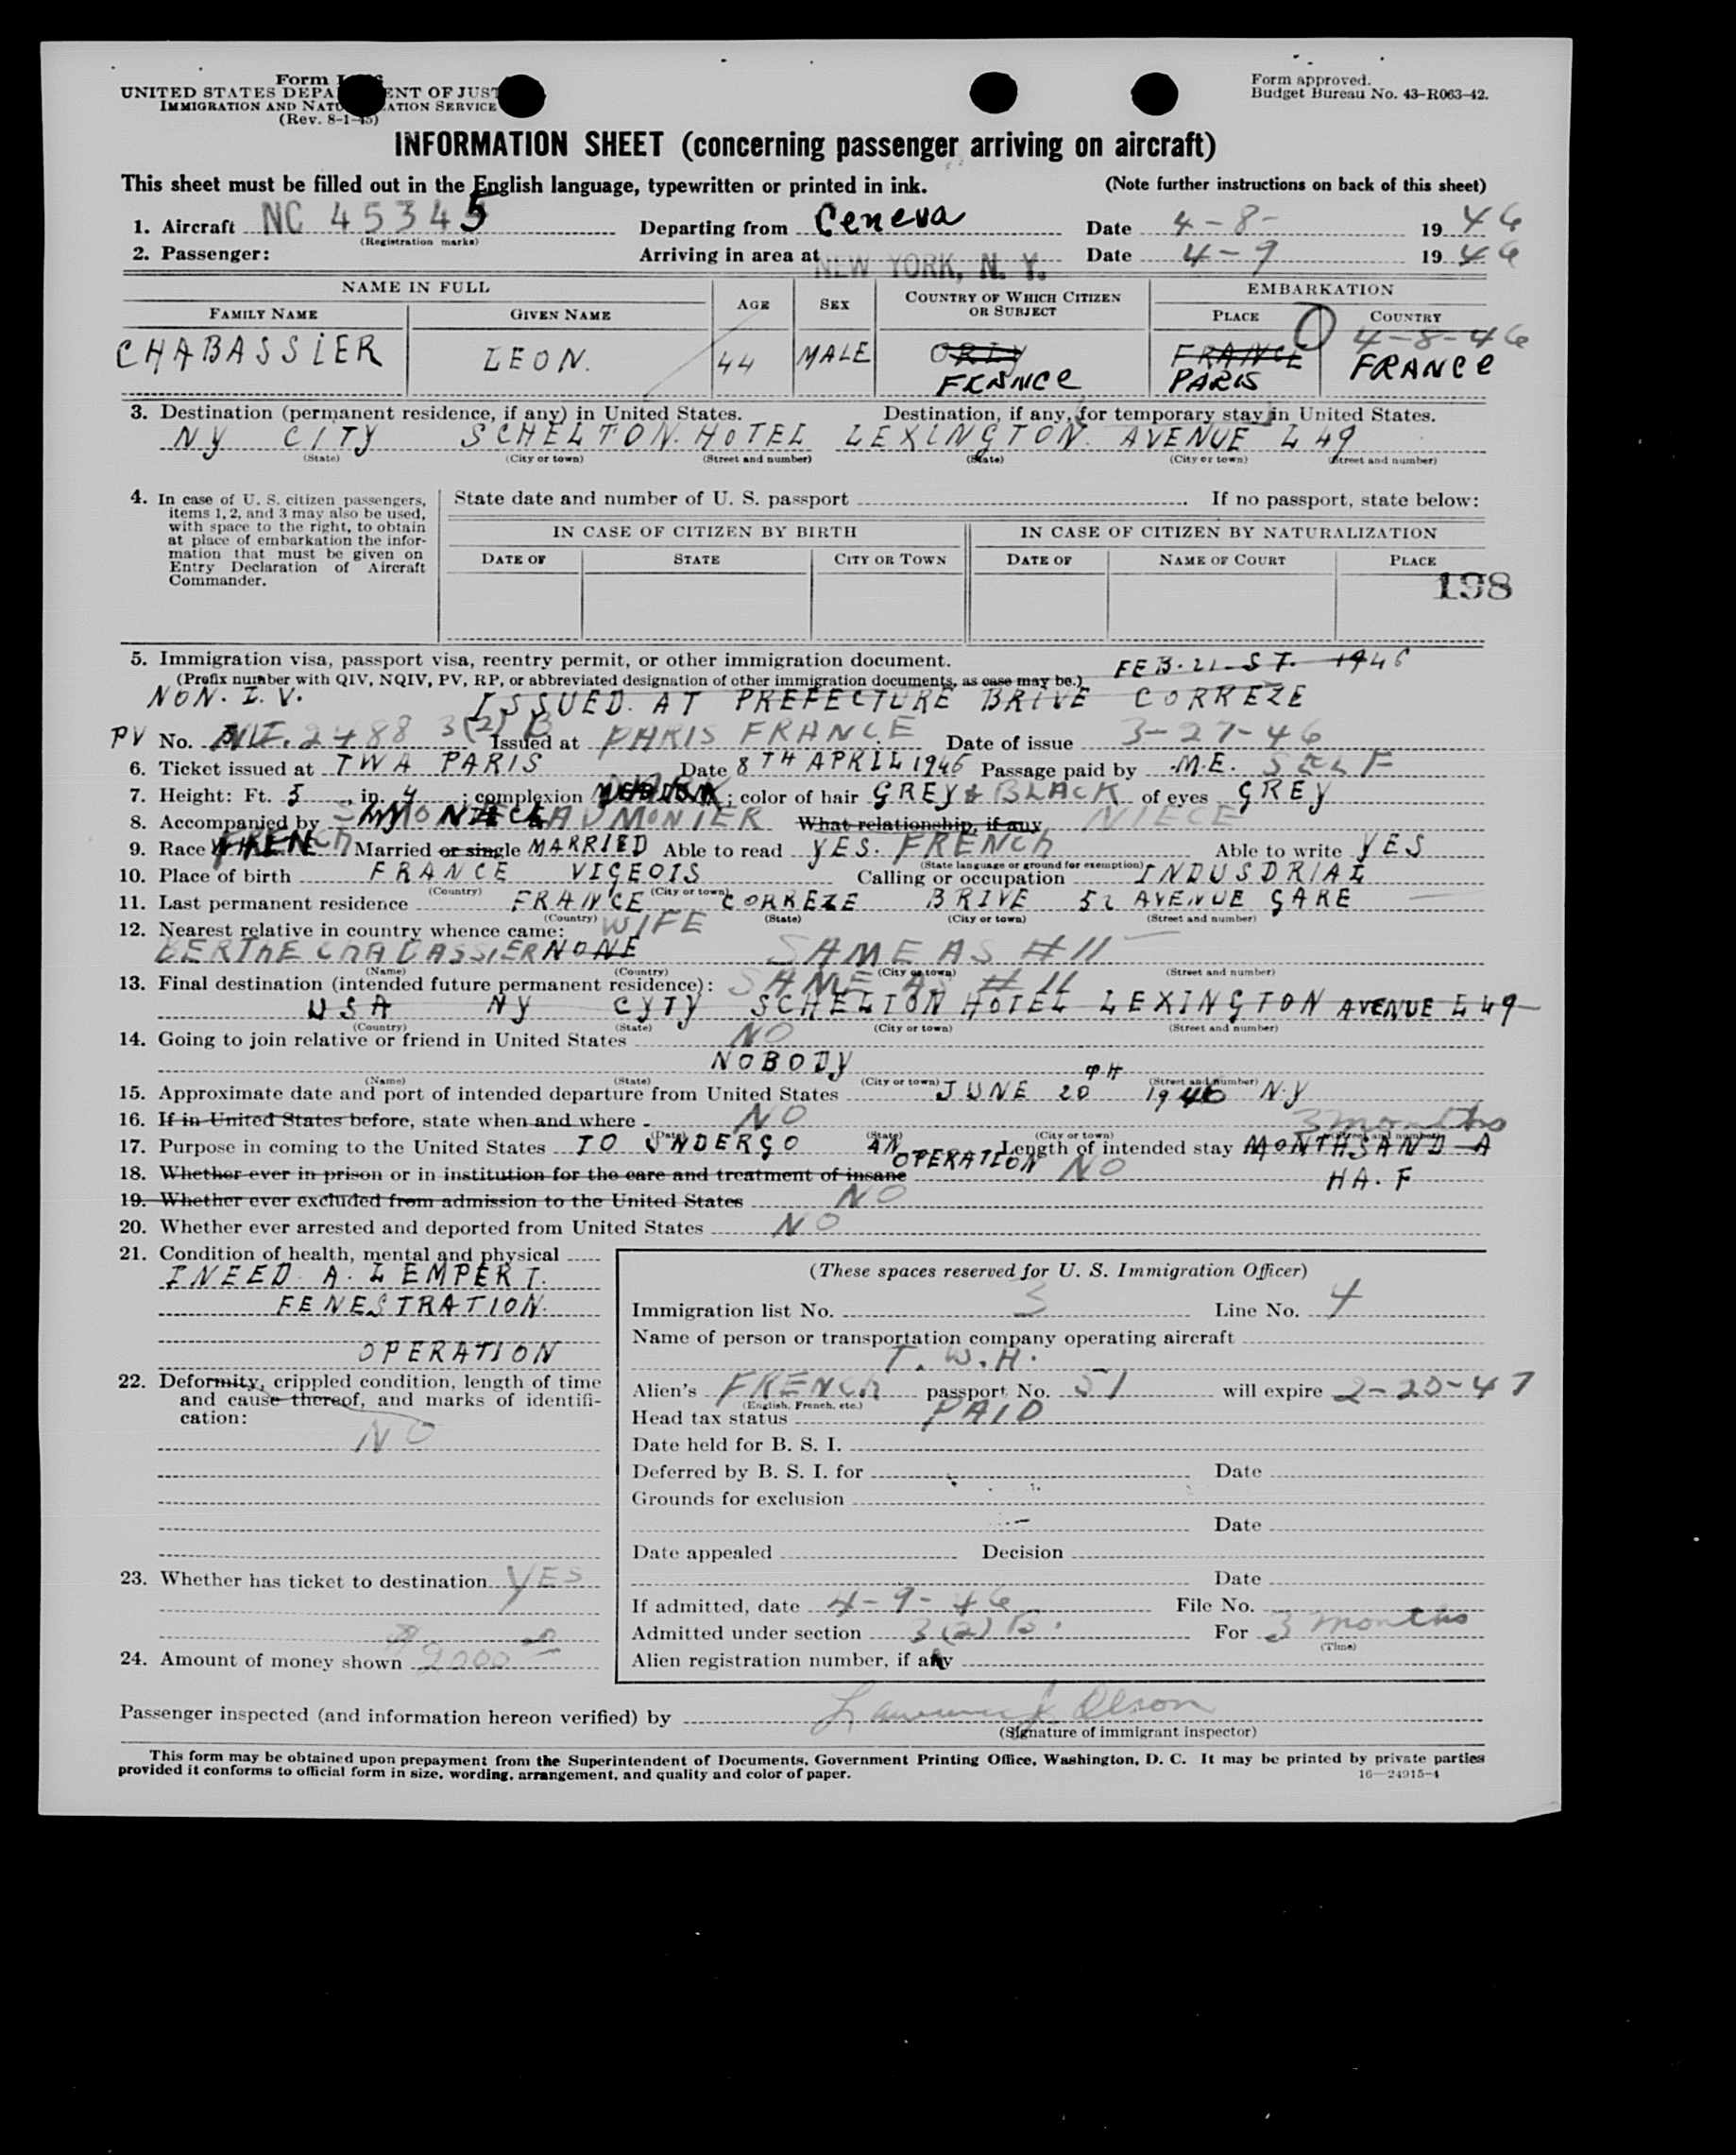 Form I-
UNITED STATES DEPA ENT OF JUST
IMMIGRATION AND NATU ATION SERVICE
(Rev. 8-1-45)
Form approved.
Budget Bureau No. 43-R063-42.
INFORMATION SHEET (concerning passenger arriving on aircraft)
This sheet must be filled out in the English language, typewritten or printed in ink. (Note further instructions on back of this sheet)
1. Aircraft NC 45345 Departing from Ceneva Date 4-8- 19 46
(Registration marks)
2. Passenger: Arriving in area at NEW YORK, N. Y. Date 4-9 19 46
NAME IN FULL AGE SEX COUNTRY OF WHICH CITIZEN OR SUBJECT EMBARKATION
FAMILY NAME GIVEN NAME PLACE COUNTRY
4-8-46
CHABASSIER LEON. 44 MALE ORLY FRANCE FRANCE
FRANCE PARIS
3. Destination (permanent residence, if any) in United States. Destination, if any, for temporary stay in United States.
NY CITY SCHELTON. HOTEL LEXINGTON. AVENUE L 49
(State) (City or town) (Street and number) (State) (City or town) (Street and number)
4. In case of U. S. citizen passengers, items 1, 2, and 3 may also be used, with space to the right, to obtain at place of embarkation the information that must be given on Entry Declaration of Aircraft Commander.
State date and number of U. S. passport If no passport, state below:
IN CASE OF CITIZEN BY BIRTH IN CASE OF CITIZEN BY NATURALIZATION
DATE OF STATE CITY OR TOWN DATE OF NAME OF COURT PLACE
198
5. Immigration visa, passport visa, reentry permit, or other immigration document. FEB. 21. ST. 1946
(Prefix number with QIV, NQIV, PV, RP, or abbreviated designation of other immigration documents, as case may be.)
NON. I. V. ISSUED. AT PREFECTURE BRIVE CORREZE
PV No. 2488 3(2) B Issued at PARIS FRANCE Date of issue 3-27-46
6. Ticket issued at TWA PARIS Date 8 TH APRIL 1946 Passage paid by M.E. SELF
7. Height: Ft. 5 , in. 4 ; complexion DARK ; color of hair GREY & BLACK of eyes GREY
8. Accompanied by LAUMONIER What relationship, if any NIECE
9. Race FRENCH Married or single MARRIED Able to read YES. FRENCH Able to write YES
(State language or ground for exemption)
10. Place of birth FRANCE VIGEOIS Calling or occupation INDUSDRIAL
(Country) (City or town)
11. Last permanent residence FRANCE CORREZE BRIVE 52 AVENUE GARE
(Country) (State) (City or town) (Street and number)
12. Nearest relative in country whence came: WIFE
BERTHE CHABASSIER NONE SAME AS # 11
(Name) (Country) (City or town) (Street and number)
13. Final destination (intended future permanent residence): SAME AS # 11
USA NY CYTY SCHELTON HOTEL LEXINGTON AVENUE L 49
(Country) (State) (City or town) (Street and number)
14. Going to join relative or friend in United States NO
NOBODY
(Name) (State) (City or town) (Street and number)
15. Approximate date and port of intended departure from United States JUNE 20 TH 1946 N.Y
16. If in United States before, state when and where NO
(Date) (State) (City or town) (Street and number)
3 months
17. Purpose in coming to the United States TO UNDERGO AN OPERATION Length of intended stay MONTHS AND A HA. F
18. Whether ever in prison or in institution for the care and treatment of insane NO
19. Whether ever excluded from admission to the United States NO
20. Whether ever arrested and deported from United States NO
21. Condition of health, mental and physical
INEED. A. LEMPERT.
FENESTRATION.
OPERATION
22. Deformity, crippled condition, length of time and cause thereof, and marks of identification:
NO
23. Whether has ticket to destination YES
24. Amount of money shown $2000
(These spaces reserved for U. S. Immigration Officer)
Immigration list No. 3 Line No. 4
Name of person or transportation company operating aircraft
T. W. A.
Alien's FRENCH passport No. 51 will expire 2-20-47
(English, French, etc.)
Head tax status PAID
Date held for B. S. I.
Deferred by B. S. I. for Date
Grounds for exclusion
Date
Date appealed Decision
Date
If admitted, date 4-9-46 File No.
Admitted under section 3(2) B For 3 months
(Time)
Alien registration number, if any
Passenger inspected (and information hereon verified) by Olson
(Signature of immigrant inspector)
This form may be obtained upon prepayment from the Superintendent of Documents, Government Printing Office, Washington, D. C. It may be printed by private parties
provided it conforms to official form in size, wording, arrangement, and quality and color of paper.
16—24915-4